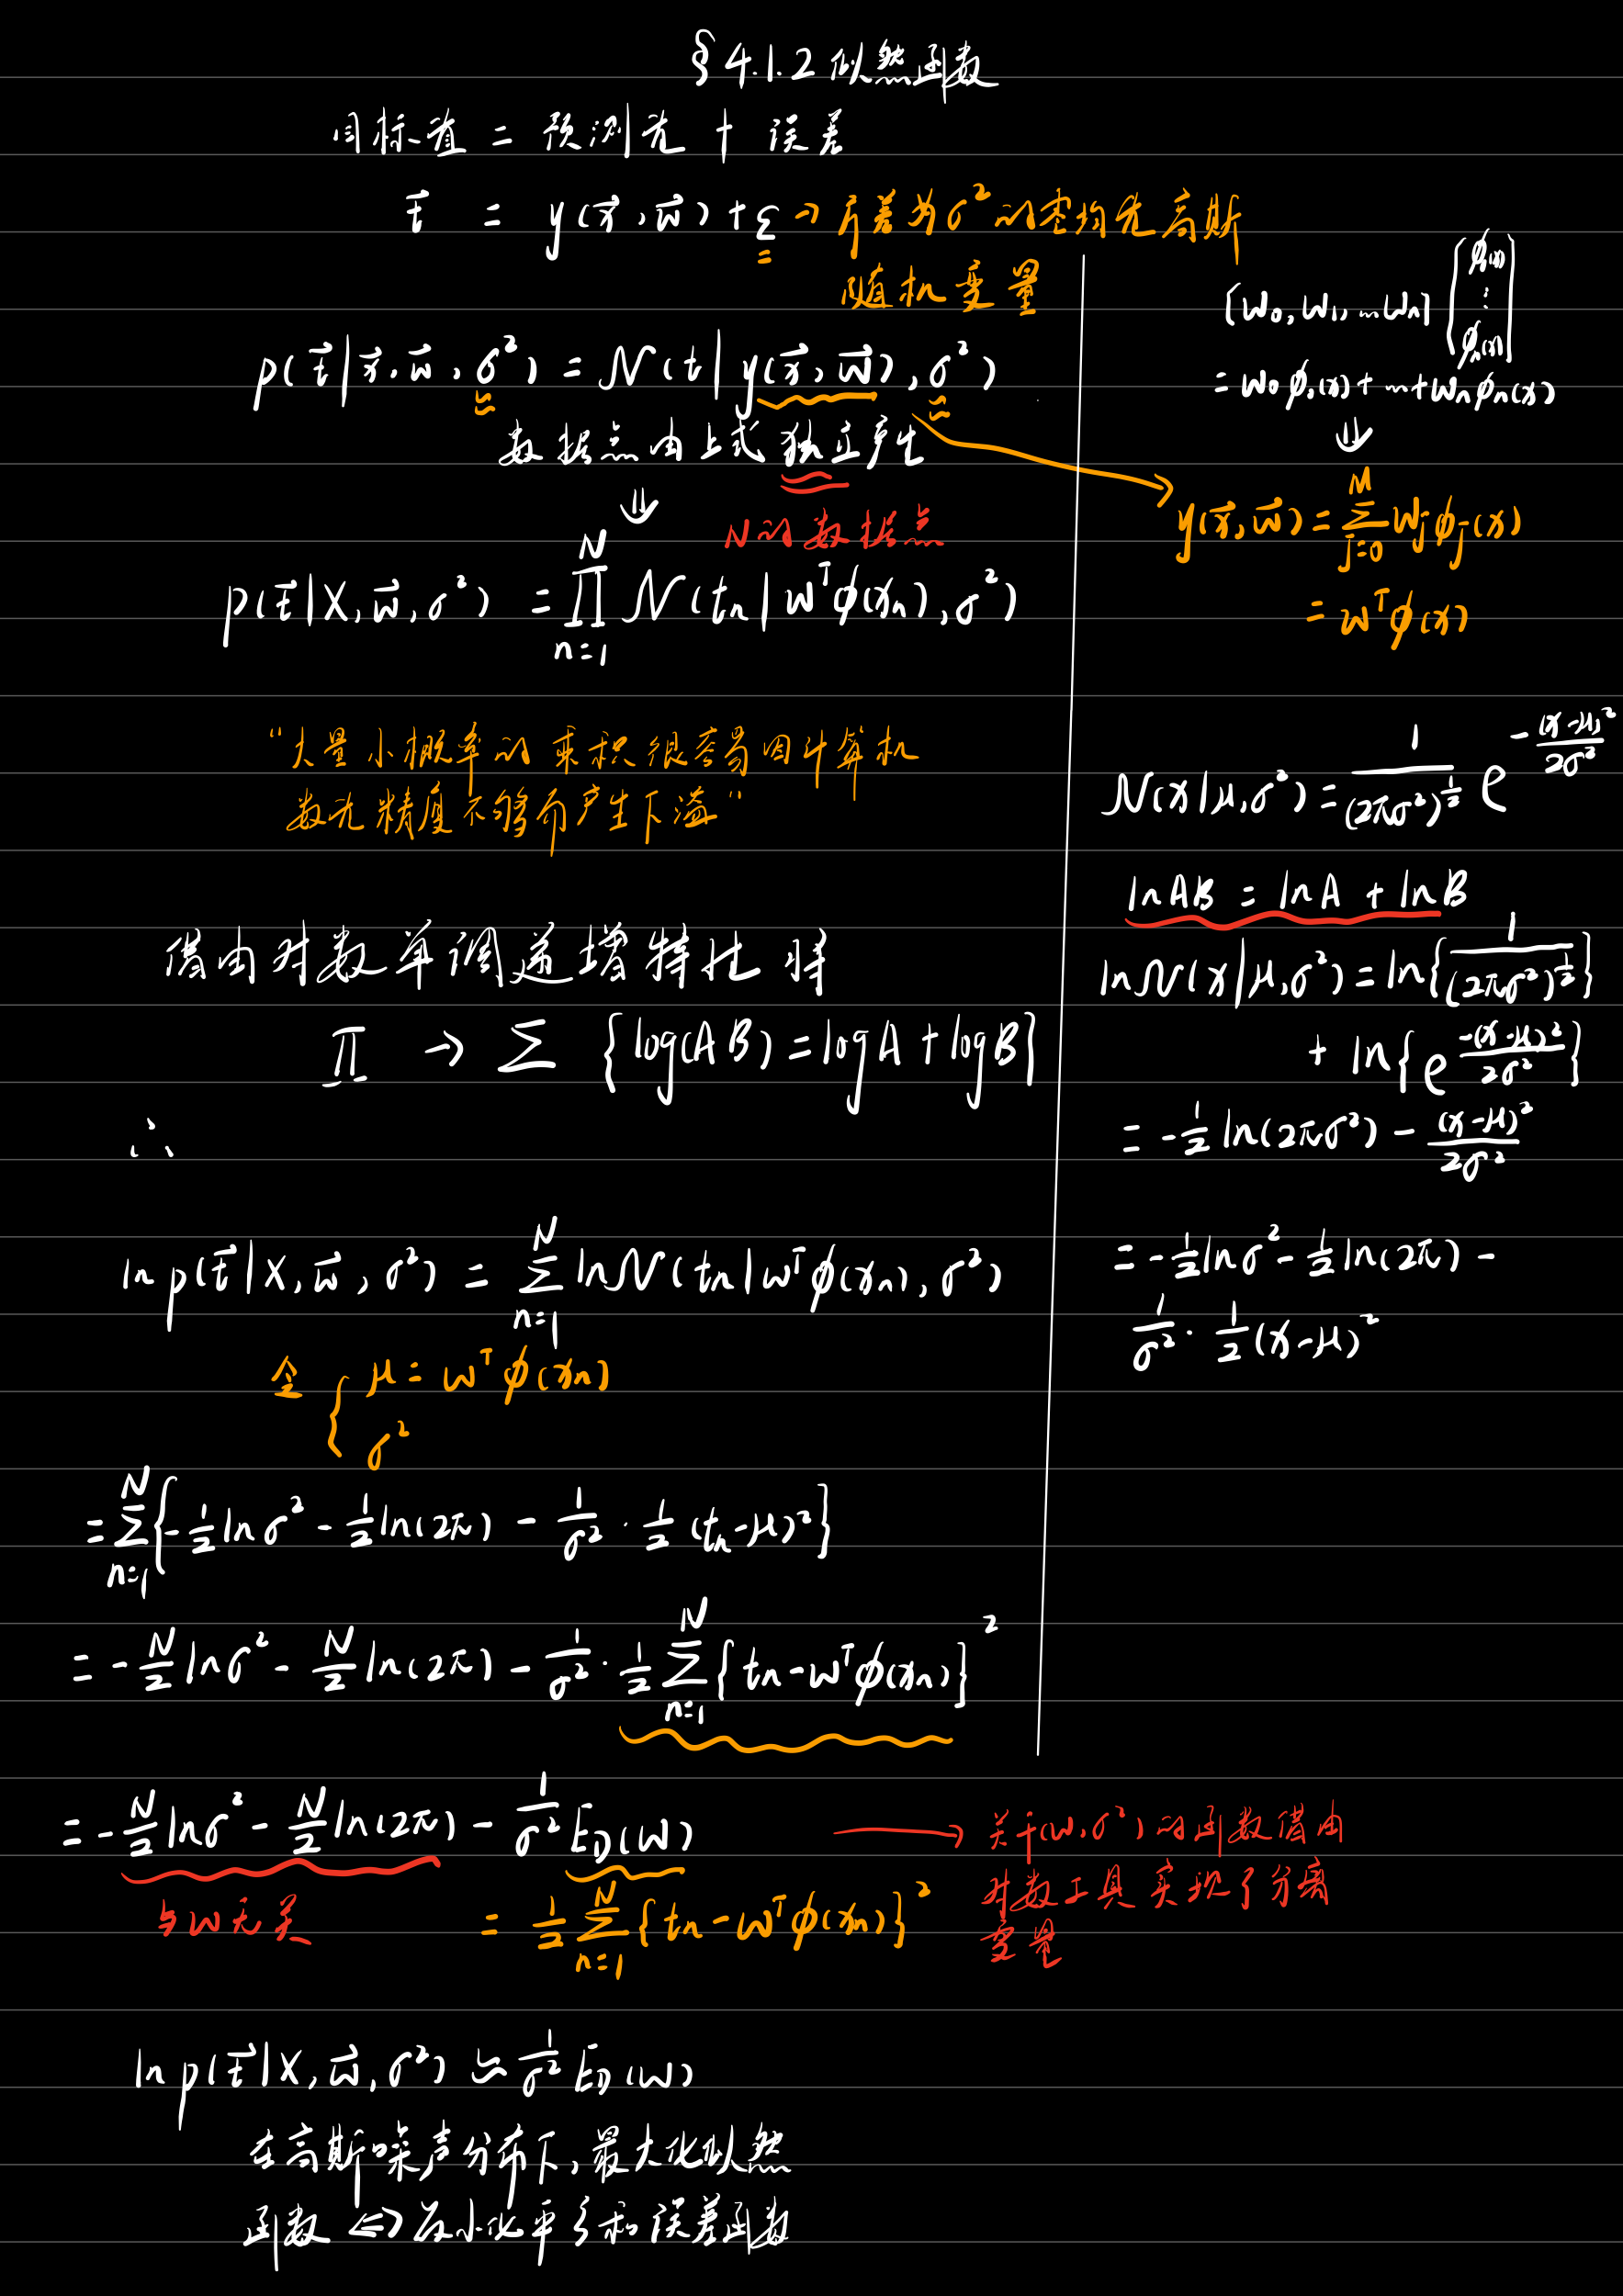 §4.1.2 似然函数
目标值 = 预测值 + 误差
t⃗ = y(x⃗, w⃗) + ε → 方差为σ²的零均值高斯
随机变量
p(t⃗|x⃗, w⃗, σ²) = N(t|y(x⃗, w⃗), σ²)
数据点由上式独立产生
⇓
N个数据点
p(t⃗|X, w⃗, σ²) = ∏_{n=1}^{N} N(tn|w^Tφ(xn), σ²)
"大量小概率的乘积很容易因计算机
数值精度不够而产生下溢"
借由对数单调递增特性 将
∏ → Σ {log(AB) = logA + logB}
∴
ln p(t⃗|X, w⃗, σ²) = Σ_{n=1}^{N} lnN(tn|w^Tφ(xn), σ²)
令 { μ = w^Tφ(xn)
σ²
= Σ_{n=1}^{N} {-1/2 lnσ² - 1/2 ln(2π) - 1/σ² · 1/2 (tn-μ)²}
= -N/2 lnσ² - N/2 ln(2π) - 1/σ² · 1/2 Σ_{n=1}^{N} {tn - w^Tφ(xn)}²
= -N/2 lnσ² - N/2 ln(2π) - 1/σ² E_D(w)
与w无关
= 1/2 Σ_{n=1}^{N} {tn - w^Tφ(xn)}²
→ 关于(w, σ²)的函数借由
对数工具实现了分离
变量
ln p(t⃗|X, w⃗, σ²) ≃ 1/σ² E_D(w)
在高斯噪声分布下,最大化似然
函数 <=> 最小化平方和误差函数
[w0, w1, … wn] [φ0(x) ⋮ φn(x)]
= w0φ0(x) + … + wnφn(x)
⇓
y(x⃗, w⃗) = Σ_{j=0}^{M} wjφj(x)
= w^Tφ(x)
N(x|μ, σ²) = 1/(2πσ²)^{1/2} e^{-(x-μ)²/2σ²}
lnAB = lnA + lnB
lnN(x|μ, σ²) = ln{1/(2πσ²)^{1/2}}
+ ln{e^{-(x-μ)²/2σ²}}
= -1/2 ln(2πσ²) - (x-μ)²/2σ²
= -1/2 lnσ² - 1/2 ln(2π) -
1/σ² · 1/2 (x-μ)²